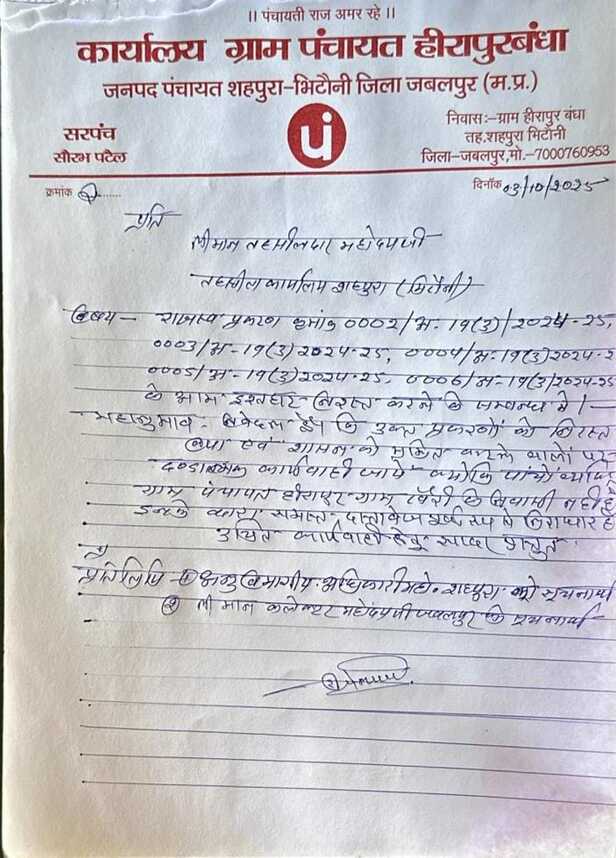 ।। पंचायती राज अमर रहे ।।
कार्यालय ग्राम पंचायत हीरापुरबंधा
जनपद पंचायत शहपुरा-भिटौनी जिला जबलपुर (म.प्र.)
सरपंच
सौरभ पटैल
पं
निवासः–ग्राम हीरापुर बंधा
तह.शहपुरा भिटौनी
जिला–जबलपुर,मो.–7000760953
क्रमांक
दिनाँक 03/10/2025
प्रति
श्रीमान तहसीलदार महोदय जी
तहसील कार्यालय शहपुरा (भिटौनी)
विषय – राजस्व प्रकरण क्रमांक 0002/अ-19(3)/2024-25,
0003/अ-19(3)2024-25, 0004/अ-19(3)2024-2
0005/अ-19(3)2024-25, 0006/अ-19(3)2024-25
के आम इश्तहार निरस्त करने के सम्बन्ध में।
महानुभाव - निवेदन है कि उक्त प्रकरणों को निरस्त
एवं शासन को करने वालों पर
दण्डात्मक कार्यवाही क्योकि पांचो
ग्राम पंचायत ग्राम के निवासी नही है
इनके द्वारा समस्त दस्तावेज रूप से निराधार है
उचित कार्यवाही हेतु सादर प्रस्तुत
प्रतिलिपि ① अनुविभागीय अधिकारी महो. शहपुरा को सूचनार्थ
② श्रीमान कलेक्टर महोदय जी जबलपुर को सूचनार्थ